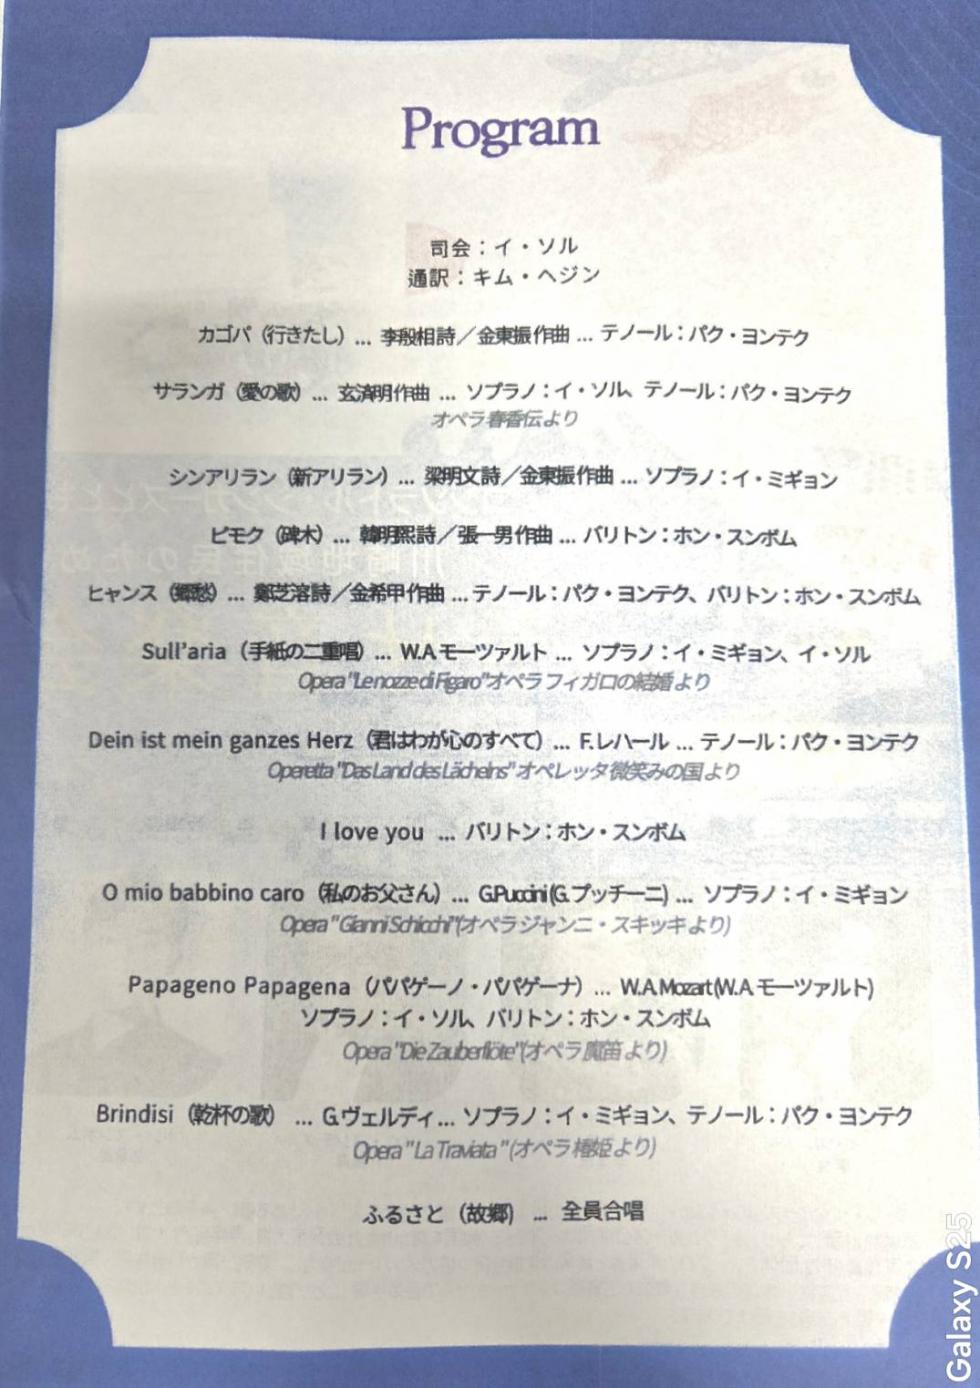 Program
司会：イ・ソル
通訳：キム・ヘジン
カゴパ（行きたし）... 李殷相詩／金東振作曲 ... テノール：パク・ヨンテク
サランガ（愛の歌）... 玄済明作曲 ... ソプラノ：イ・ソル、テノール：パク・ヨンテク
オペラ春香伝より
シンアリラン（新アリラン）... 梁明文詩／金東振作曲 ... ソプラノ：イ・ミギョン
ビモク（碑木）... 韓明熙詩／張一男作曲 ... バリトン：ホン・スンボム
ヒャンス（郷愁）... 鄭芝溶詩／金希甲作曲 ... テノール：パク・ヨンテク、バリトン：ホン・スンボム
Sull'aria（手紙の二重唱）... W.A モーツァルト ... ソプラノ：イ・ミギョン、イ・ソル
Opera "Le nozze di Figaro"オペラ フィガロの結婚 より
Dein ist mein ganzes Herz（君はわが心のすべて）... F.レハール ... テノール：パク・ヨンテク
Operetta "Das Land des Lächelns" オペレッタ 微笑みの国 より
I love you ... バリトン：ホン・スンボム
O mio babbino caro（私のお父さん）... G.Puccini (G. プッチーニ) ... ソプラノ：イ・ミギョン
Opera " Gianni Schicchi"(オペラ ジャンニ・スキッキ より)
Papageno Papagena（パパゲーノ・パパゲーナ）... W.A Mozart (W.A. モーツァルト)
ソプラノ：イ・ソル、バリトン：ホン・スンボム
Opera "Die Zauberflöte"(オペラ 魔笛 より)
Brindisi（乾杯の歌） ... G.ヴェルディ... ソプラノ：イ・ミギョン、テノール：パク・ヨンテク
Opera " La Traviata " (オペラ 椿姫 より)
ふるさと（故郷) ... 全員合唱
Galaxy S25